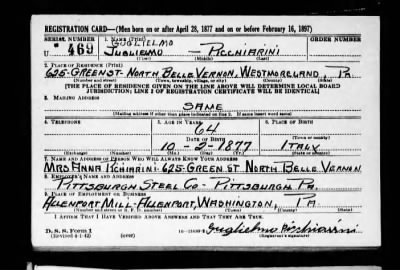 REGISTRATION CARD—(Men born on or after April 28, 1877 and on or before February 16, 1897)
SERIAL NUMBER 1. NAME (Print) ORDER NUMBER
GUGLIELMO
U 469 JUGLIEMO — PICCHIARINI
(First) (Middle) (Last)
2. PLACE OF RESIDENCE (Print)
625-GREEN ST- NORTH BELLE VERNON, WESTMORELAND, PA.
(Number and street) (Town, township, village, or city) (County) (State)
[THE PLACE OF RESIDENCE GIVEN ON THE LINE ABOVE WILL DETERMINE LOCAL BOARD
JURISDICTION; LINE 2 OF REGISTRATION CERTIFICATE WILL BE IDENTICAL]
3. MAILING ADDRESS
SAME
(Mailing address if other than place indicated on line 2. If same insert word same)
4. TELEPHONE 5. AGE IN YEARS 6. PLACE OF BIRTH
64
DATE OF BIRTH (Town or county)
10-2-1877 ITALY
(Exchange) (Number) (Mo.) (Day) (Yr.) (State or country)
7. NAME AND ADDRESS OF PERSON WHO WILL ALWAYS KNOW YOUR ADDRESS
MRS ANNA PICHIARINI-625-GREEN ST NORTH BELLE VERNON
8. EMPLOYER'S NAME AND ADDRESS
PITTSBURGH STEEL CO- PITTSBURGH PA.
9. PLACE OF EMPLOYMENT OR BUSINESS
ALLENPORT MILL-ALLENPORT, WASHINGTON, PA
(Number and street or R. F. D. number) (Town) (County) (State)
I AFFIRM THAT I HAVE VERIFIED ABOVE ANSWERS AND THAT THEY ARE TRUE.
D. S. S. Form 1
(Revised 4-1-42) (over) Guglielmo Picchiarini
(Registrant's signature)